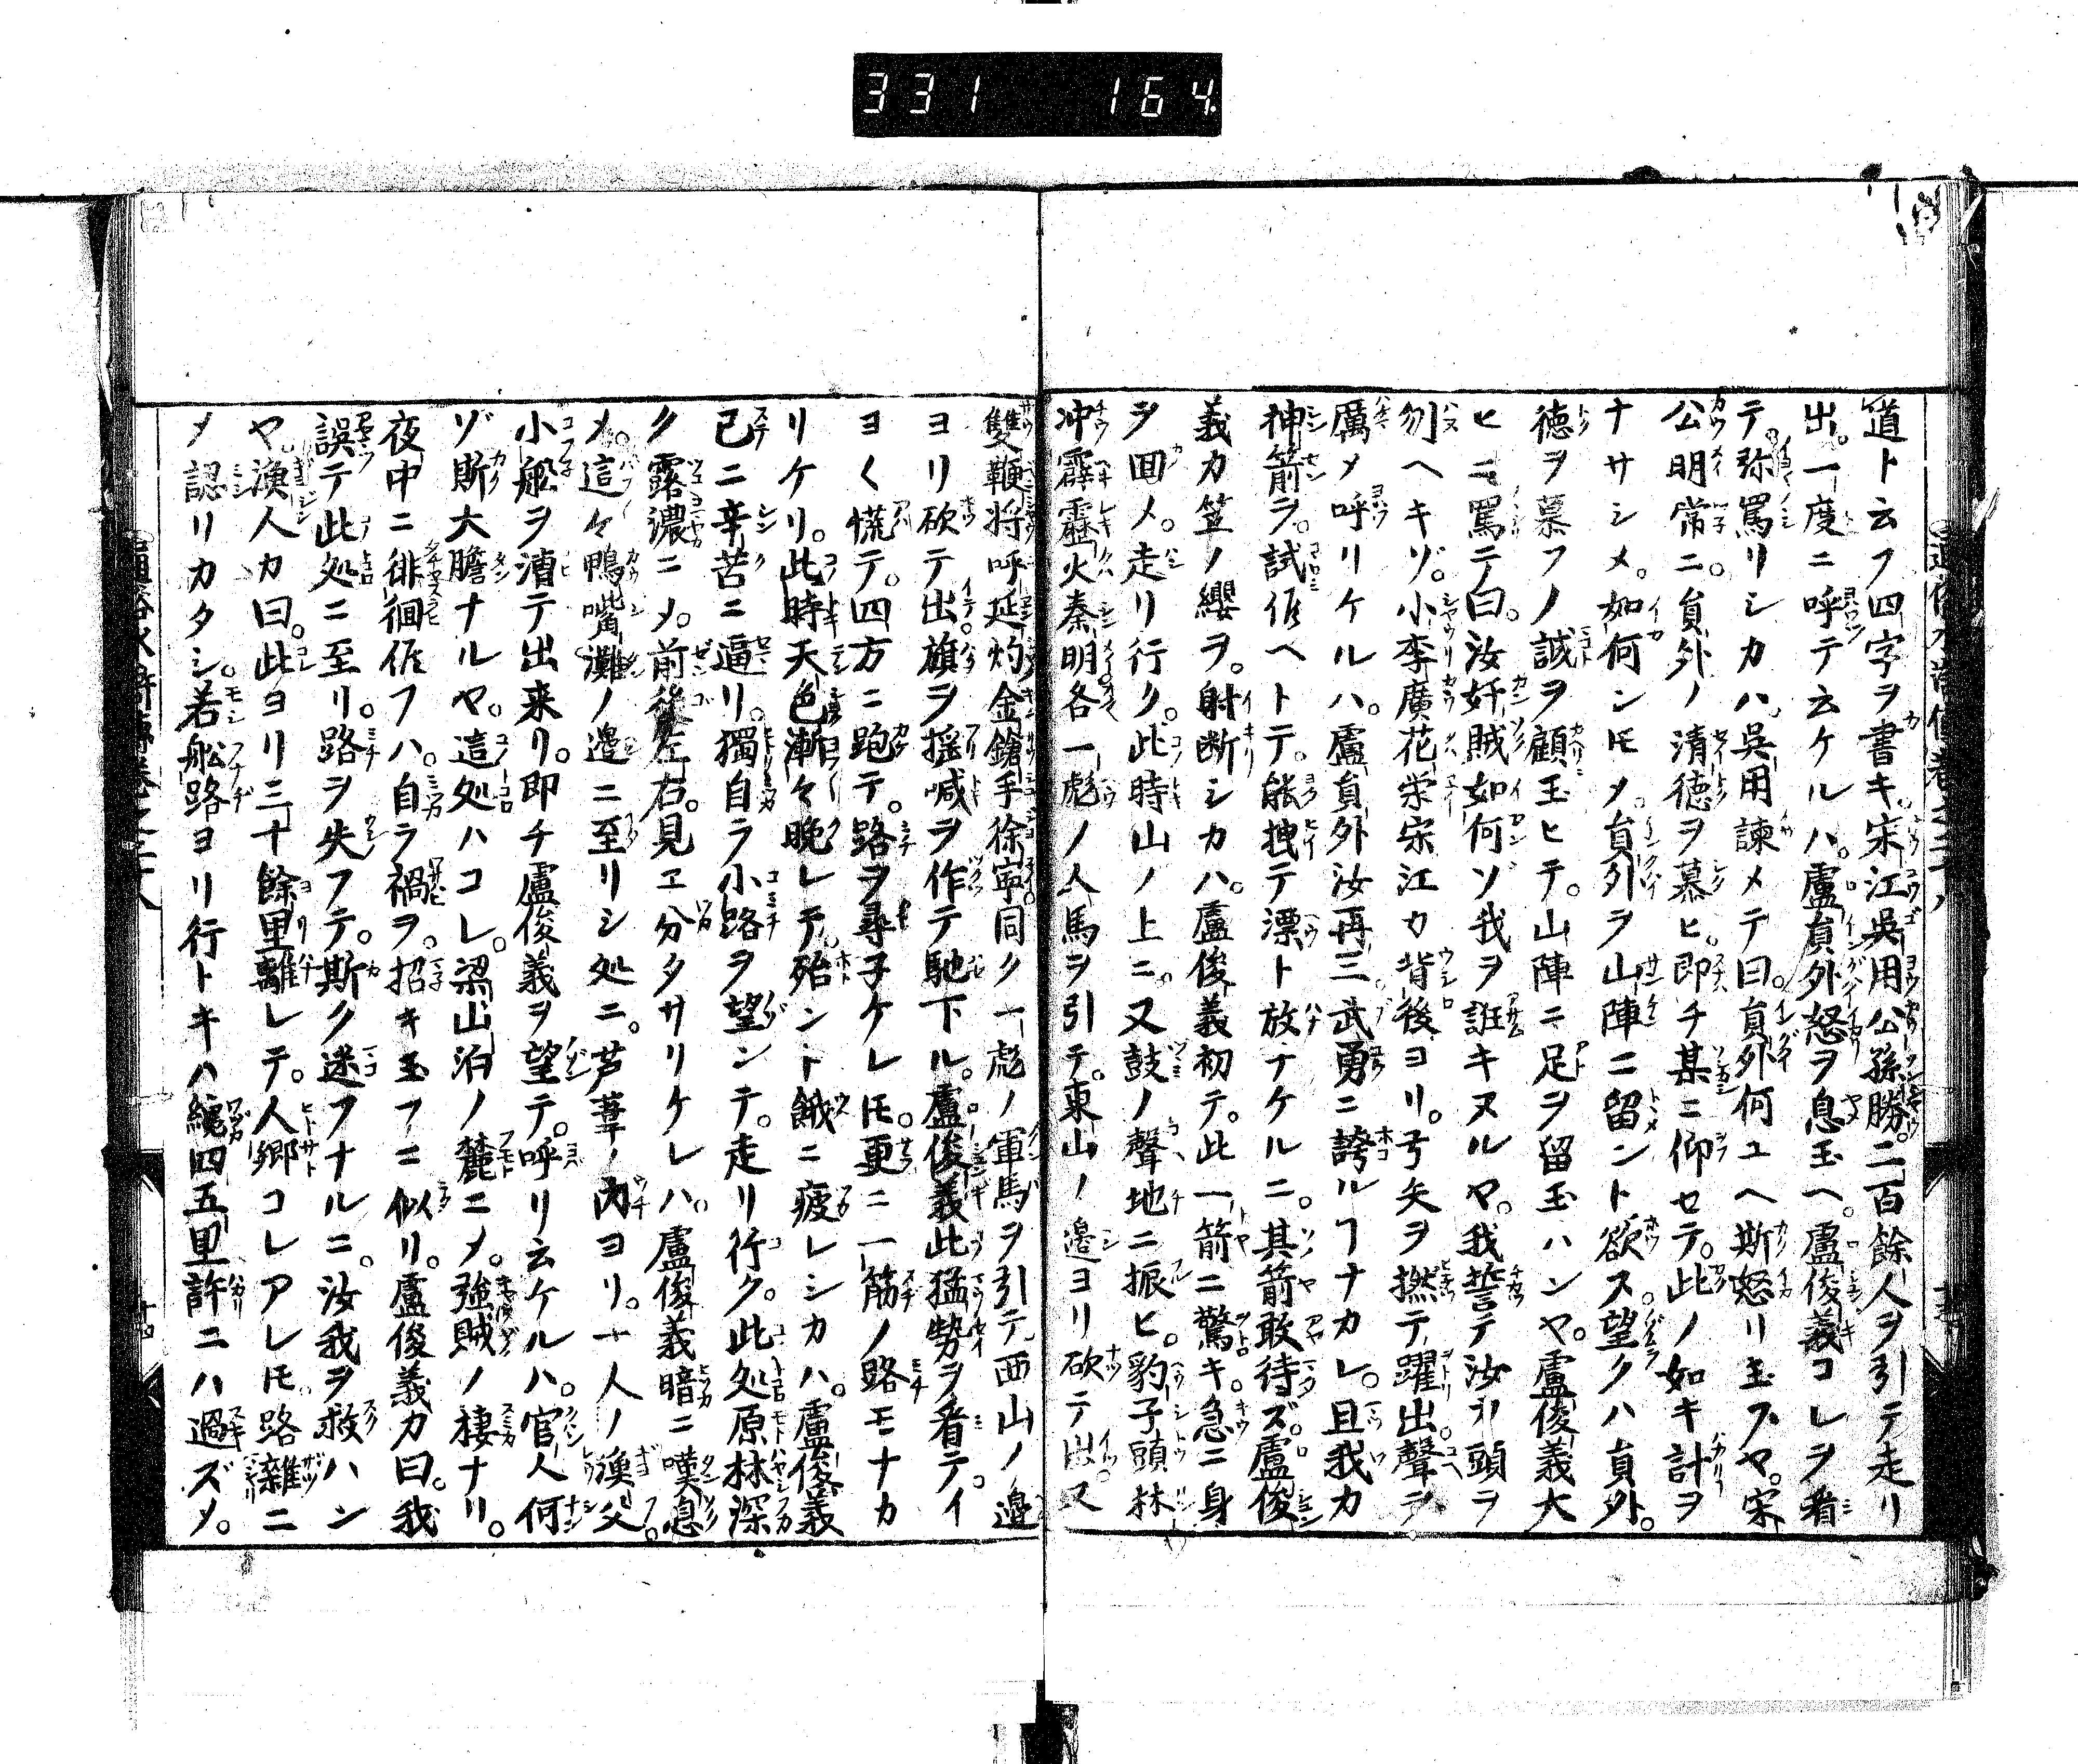 331 164
道ト云フ四字ヲ書キ。宋江吳用公孫勝。二百餘人ヲ引テ走リ
出。一度ニ呼テ云ケルハ。盧員外怒ヲ息玉ヘ。盧俊義コレヲ看
テ。弥罵リシカハ。吳用諫メテ曰。員外何ユヘ斯怒リ玉フヤ。宋
公明常ニ。員外ノ清徳ヲ慕ヒ。即チ某ニ仰セテ。此ノ如キ計ヲ
ナサシメ。如何ンモメ。員外ヲ山陣ニ留ント欲ス。望クハ員外。
徳ヲ慕フノ誠ヲ顧玉ヒテ。山陣ニ足ヲ留玉ハンヤ。盧俊義大
ヒニ罵テ曰。汝奸賊如何ゾ我ヲ誑キヌルヤ。我誓テ汝カ頭ヲ
刎ヘキゾ。小李廣花栄宋江カ背後ヨリ。弓矢ヲ撚テ躍出。聲ヲ
厲メ呼リケルハ。盧員外汝再三武勇ニ誇ルヿナカレ。且我カ
神箭ヲ。試依ヘトテ。能拽テ漂ト放ナケルニ。其箭敢待ズ。盧俊
義カ笠ノ纓ヲ。射断シカハ。盧俊義初テ。此一箭ニ驚キ。急ニ身
ヲ囬メ。走リ行ク。此時山ノ上ニ。又鼓ノ聲地ニ振ヒ。豹子頭林
冲霹靂火秦明。各一彪ノ人馬ヲ引テ。東山ノ邉ヨリ砍テ出。又
雙鞭将呼延灼金鎗手徐寧。同ク一彪ノ軍馬ヲ引テ。西山ノ邉
ヨリ砍テ出。旗ヲ揺喊ヲ作テ馳下ル。盧俊義此猛勢ヲ看テ。イ
ヨく慌テ。四方ニ跑テ。路ヲ尋子ケレ𪜈。更ニ一筋ノ路モナカ
リケリ。此時天色漸々晩レテ。殆ント餓ニ疲レシカハ。盧俊義
已ニ辛苦ニ逼リ。獨自ラ小路ヲ望ンテ。走リ行ク。此処原林深
ク露濃ニメ。前後左右。見ヱ分タサリケレハ。盧俊義暗ニ嘆息
メ。這々鴨嘴灘ノ邉ニ至リシ処ニ。芦葦ノ内ヨリ。一人ノ漁父。
小舩ヲ漕テ出来リ。即チ盧俊義ヲ望テ。呼リ云ケルハ。官人何
ゾ斯大膽ナルヤ。這処ハコレ。梁山泊ノ麓ニメ。強賊ノ棲ナリ。
夜中ニ徘徊依フハ。自ラ禍ヲ。招キ玉フニ似リ。盧俊義カ曰。我
誤テ此処ニ至リ。路ヲ失フテ。斯ク迷フナルニ。汝我ヲ救ハン
ヤ。漁人カ曰。此ヨリ三十餘里離レテ。人郷コレアレ𪜈。路雑ニ
メ認リカタシ。若舩路ヨリ行トキハ纔四五里許ニハ過ズメ。